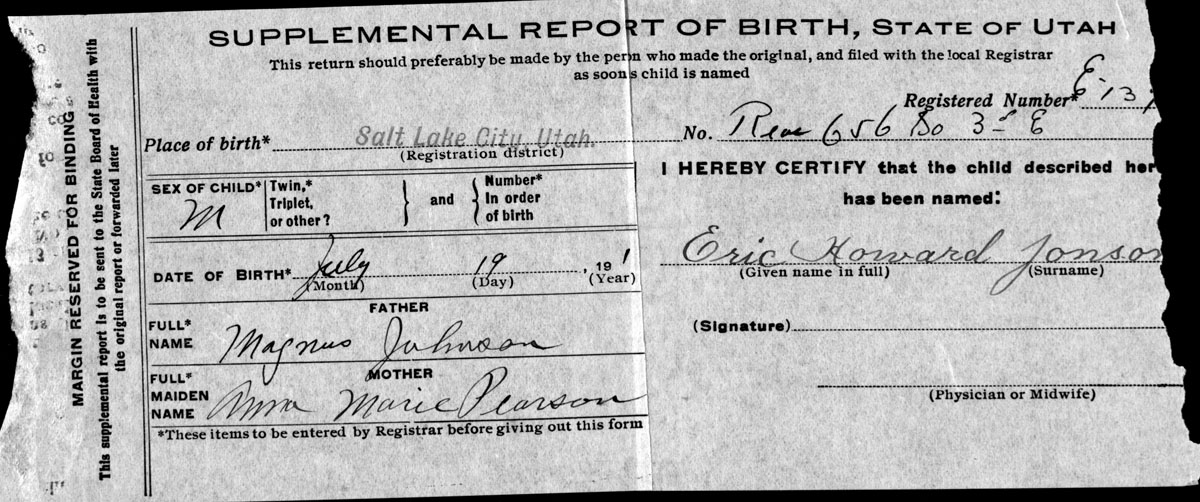 SUPPLEMENTAL REPORT OF BIRTH, STATE OF UTAH
This return should preferably be made by the person who made the original, and filed with the local Registrar
as soon s child is named
Registered Number* E-13
Place of birth* Salt Lake City, Utah.
(Registration district)
No. Rear 656 So 3rd E
SEX OF CHILD*
M
Twin,*
Triplet,
or other?
and
Number*
In order
of birth
DATE OF BIRTH* July 19, 191 1
(Month) (Day) (Year)
FATHER
FULL*
NAME
Magnus Johnson
MOTHER
FULL*
MAIDEN
NAME
Anna Marie Pearson
*These items to be entered by Registrar before giving out this form
I HEREBY CERTIFY that the child described her
has been named:
Eric Howard Jonson
(Given name in full) (Surname)
(Signature)
(Physician or Midwife)
MARGIN RESERVED FOR BINDING
This supplemental report is to be sent to the State Board of Health with
the original report or forwarded later